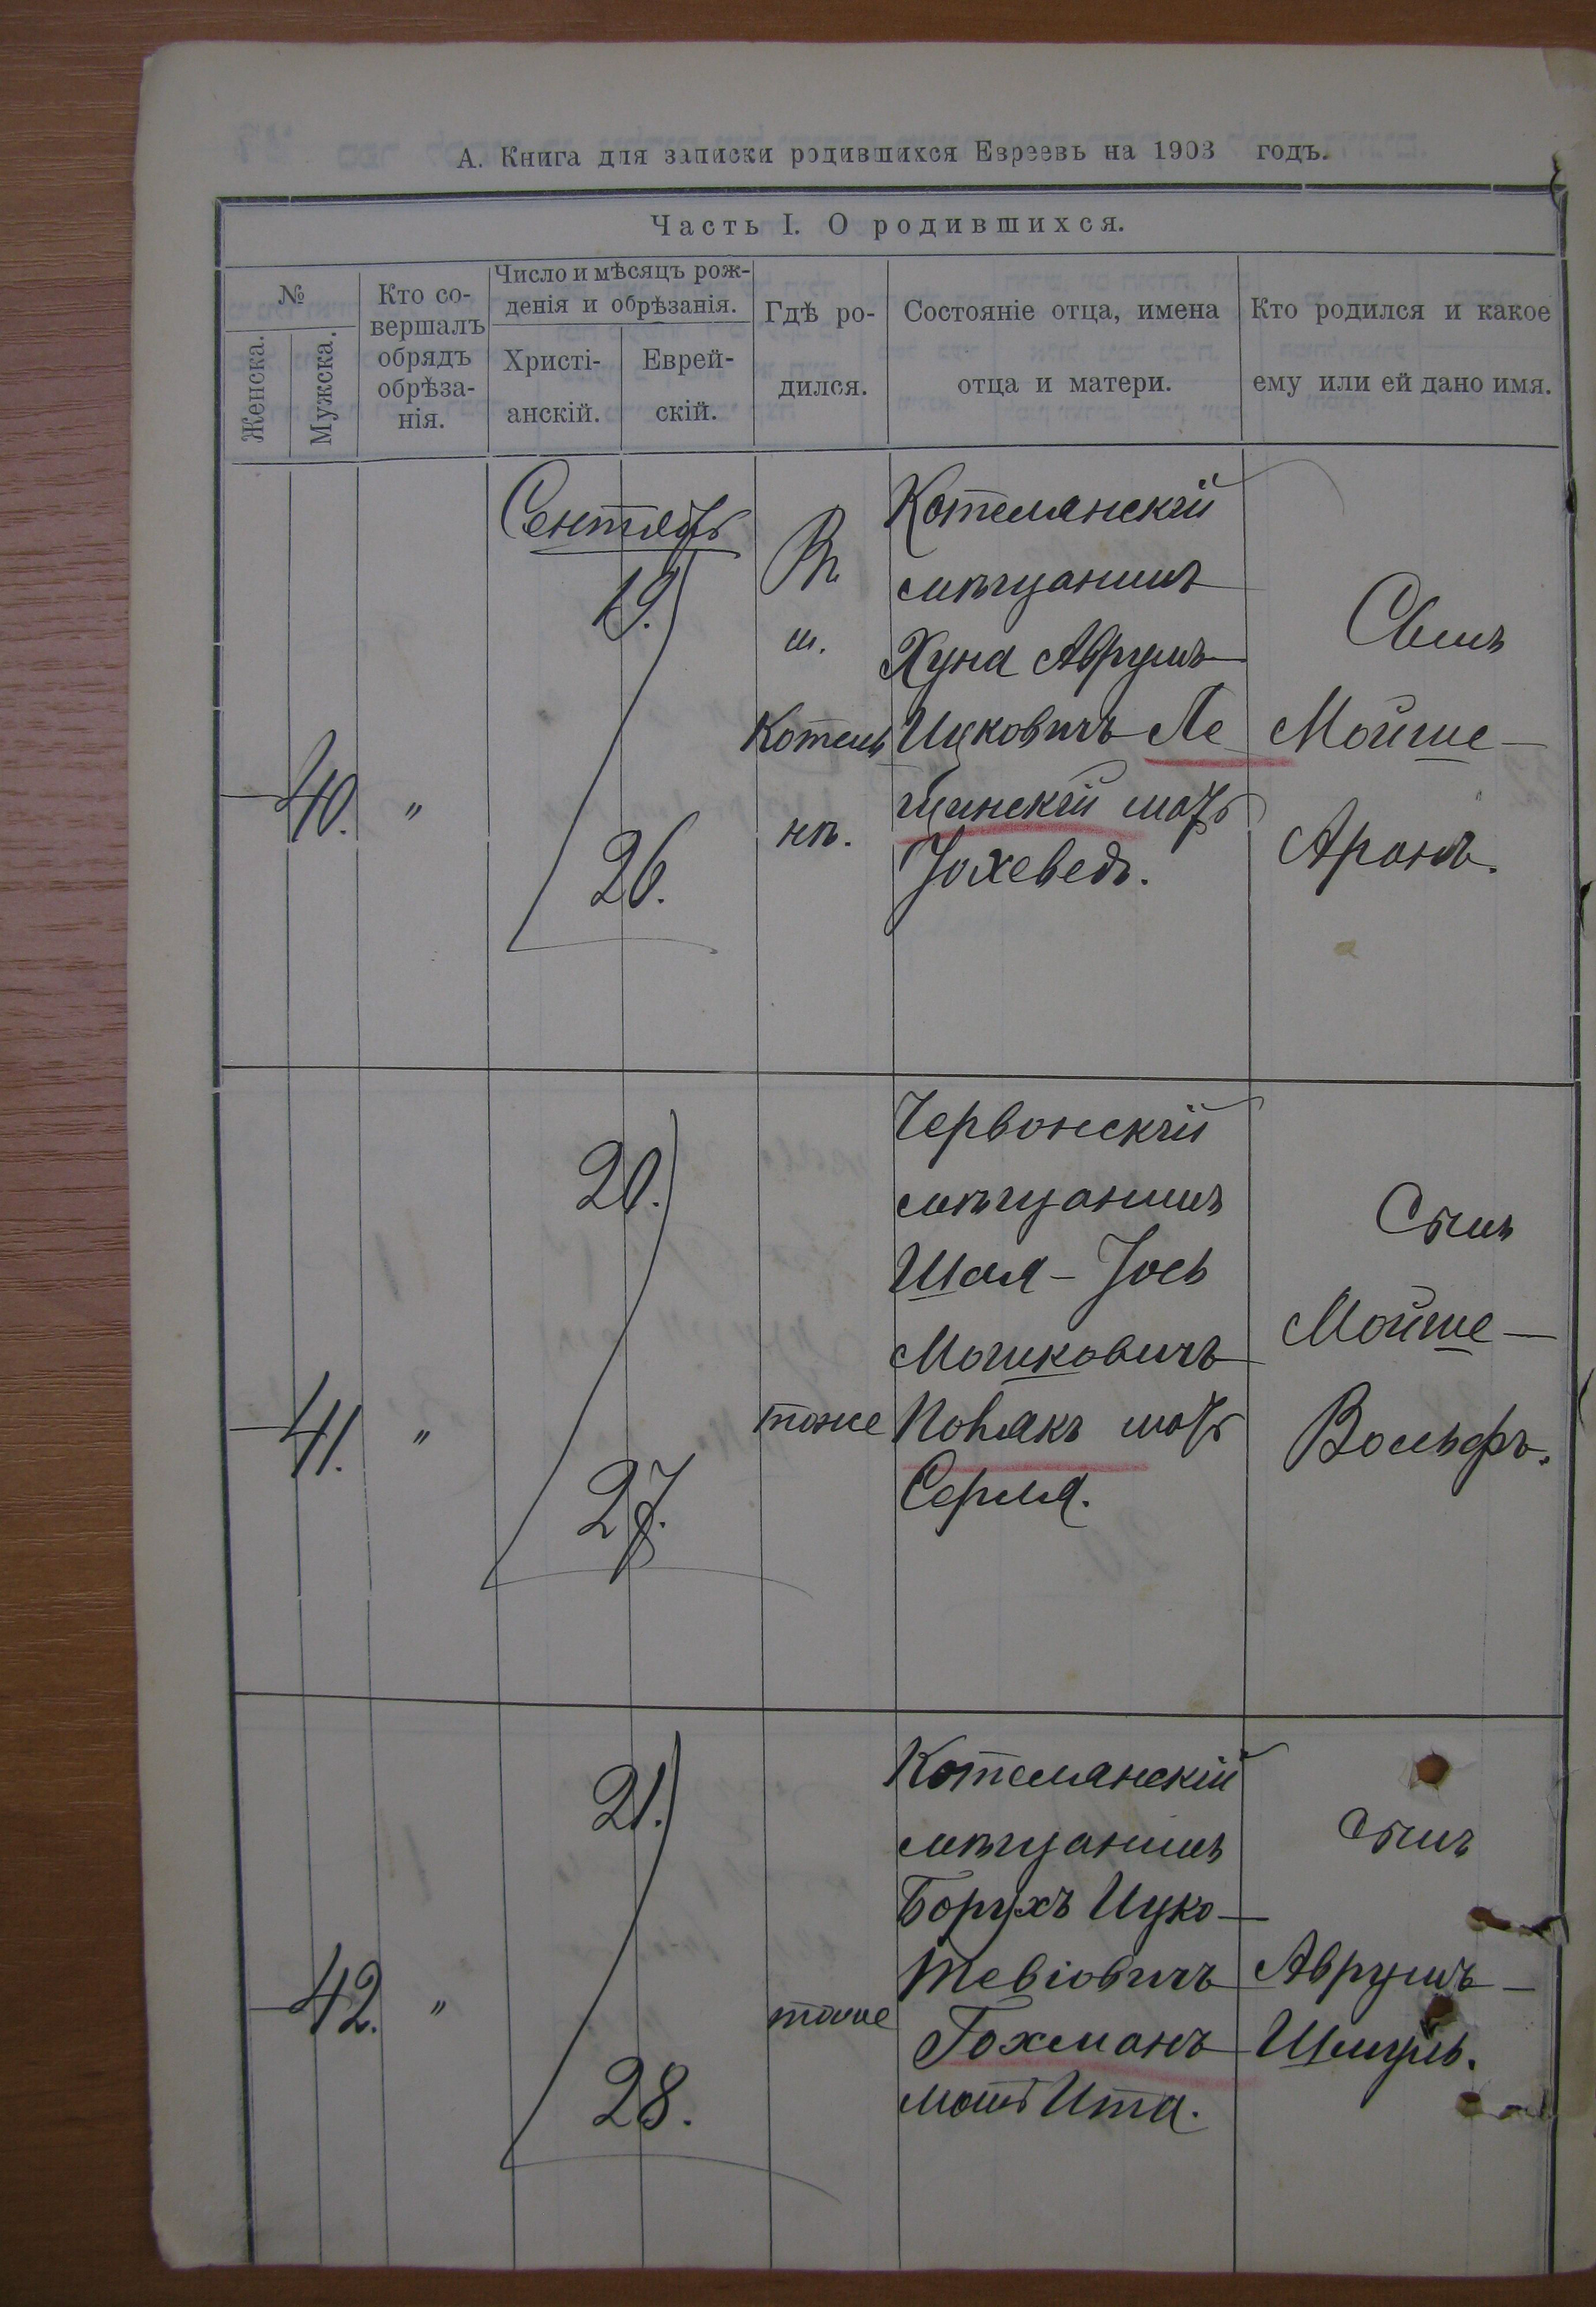 А. Книга для записки родившихся Евреевъ на 1903 годъ.
Часть I. О родившихся.
№
Женска.
Мужска.
Кто со-
вершалъ
обрядъ
обрѣза-
нія.
Число и мѣсяцъ рож-
денія и обрѣзанія.
Христі-
анскій.
Еврей-
скій.
Гдѣ ро-
дился.
Состояніе отца, имена
отца и матери.
Кто родился и какое
ему или ей дано имя.
40.
"
Сентябрь
19.
26.
Въ
м.
Котель
нѣ.
Котелянскій
мѣщанинъ
Хуна Аврумъ
Ицковичъ Ле
щинскій мать
Іохеведъ.
Сынъ
Мойше —
Аронъ.
41.
"
20.
27.
тоже
Червонскій
мѣщанинъ
Шая - Іось
Мошковичъ
Поляк мать
Серля.
Сынъ
Мойше —
Вольфъ.
42.
"
21.
28.
тоже
Котелянскій
мѣщанинъ
Борухъ Ицко —
Тевіовичъ
Гохманъ
мать Ита.
Сынъ
Аврумъ —
Шмуль.